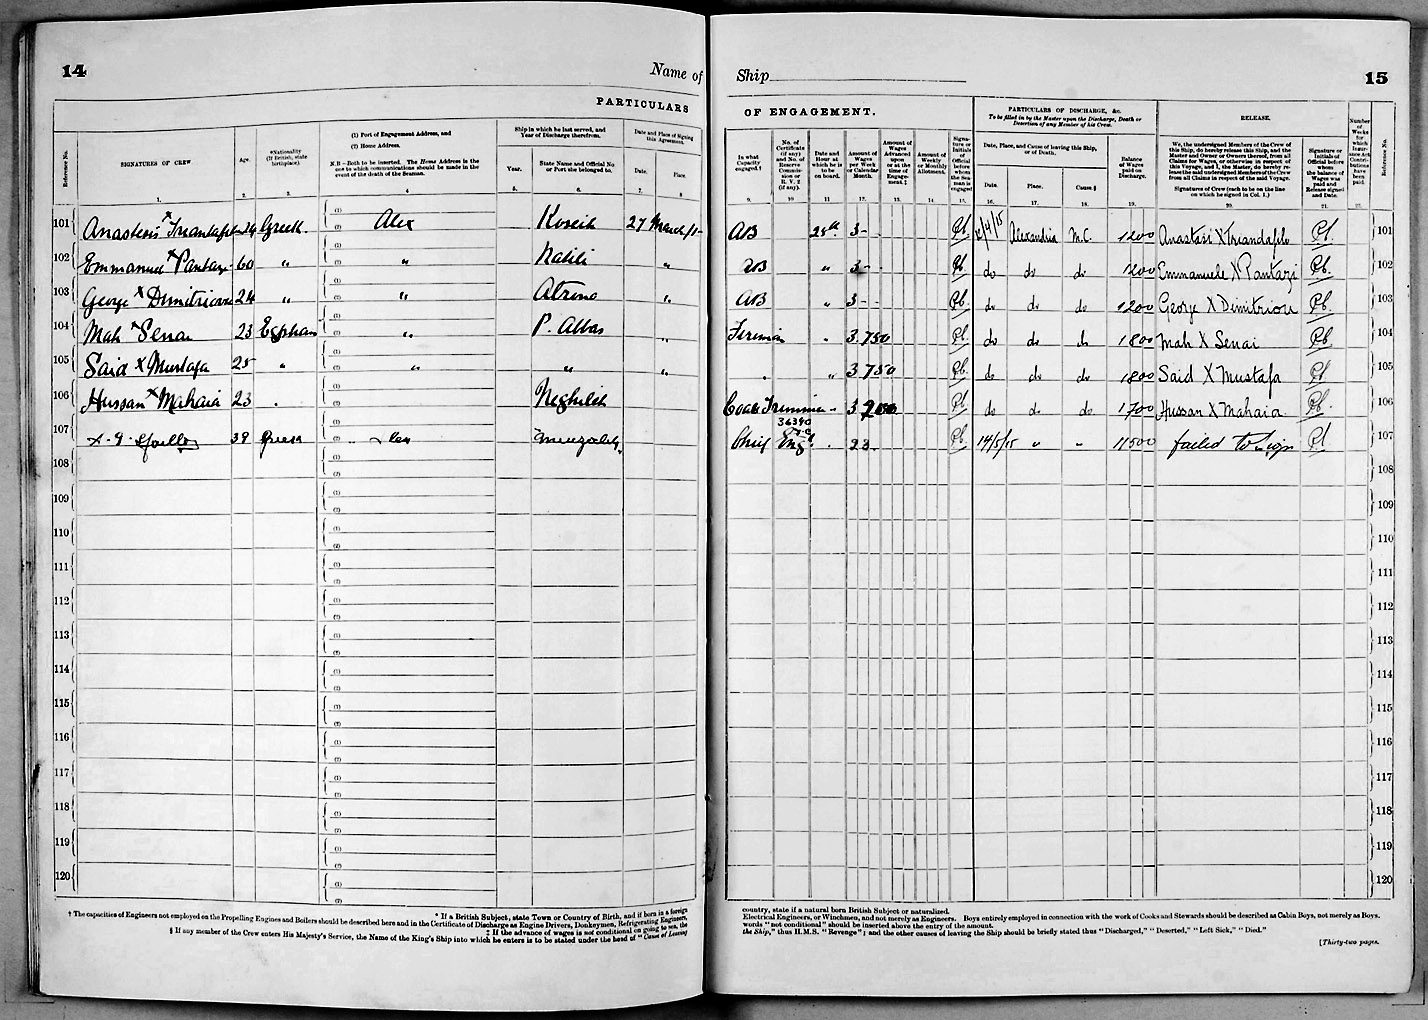 14
Name of Ship
15
PARTICULARS OF ENGAGEMENT.
PARTICULARS OF DISCHARGE, &c.
To be filled in by the Master upon the Discharge, Death or Desertion of any Member of his Crew.
RELEASE.
Reference No.
SIGNATURES OF CREW
1.
Age.
2.
*Nationality
(If British, state birthplace).
3.
(1) Port of Engagement Address, and
(2) Home Address.
N.B.—Both to be inserted. The Home Address is the one to which communications should be made in the event of the death of the Seaman.
4
Ship in which he last served, and Year of Discharge therefrom.
Year.
5.
State Name and Official No or Port she belonged to.
6.
Date and Place of Signing this Agreement.
Date.
7.
Place.
8
In what Capacity engaged.†
9.
No. of Certificate (if any) and No. of Reserve Commission or R. V. 2 (if any).
10
Date and Hour at which he is to be on board.
11
Amount of Wages per Week or Calendar Month.
12.
Amount of Wages Advanced upon or at the time of Engagement.‡
13.
Amount of Weekly or Monthly Allotment.
14.
Signature or Initials of Official before whom the Seaman is engaged
15.
Date, Place, and Cause of leaving this Ship, or of Death.
Date.
16.
Place.
17.
Cause.§
18.
Balance of Wages paid on Discharge.
19.
We, the undersigned Members of the Crew of this Ship, do hereby release this Ship, and the Master and Owner or Owners thereof, from all Claims for Wages, or otherwise, in respect of this Voyage, and I, the Master, do hereby release the said undersigned Members of the Crew from all Claims in respect of the said Voyage.
Signatures of Crew (each to be on the line on which he signed in Col. 1.)
20.
Signature or Initials of Official before whom the balance of Wages was paid and Release signed and Date.
21.
Number of Weeks for which Insurance Act Contributions have been paid.
22.
Reference No.
101 Anastasis X Triandafilo 24 Greek (1) Alex Koseih 27 March/15 AB 28th 3 - - Pb. 12/4/15 Alexandria M.C. 1200 Anastasi X Triandafilo Pb. 101
102 Emmanuel X Pantazi 60 " (1) " " AB " 3 - - Pb. do do do 1200 Emmanuele X Pantazi Pb. 102
103 George X Dimitriou 24 " (1) " " AB " 3 - - Pb. do do do 1200 George X Dimitriou Pb. 103
104 Mah X Senai 23 (1) " P. Abbas " Fireman " 3.750 Pb. do do do 1800 Mah X Senai Pb. 104
105 Said X Mustafa 25 " (1) " " " " " 3 750 Pb. do do do 1800 Said X Mustafa Pb. 105
106 Hussan X Mahaia 23 " (1) Neghileh Coal Trimmer " 3 Pb. do do do 1700 Hussan X Mahaia Pb. 106
36390
107 39 (1) Alex Chief Eng. " 23. Pb. 14/5/15 " " 11500 failed to sign Pb. 107
108 (1) (2) 108
109 (1) (2) 109
110 (1) (2) 110
111 (1) (2) 111
112 (1) (2) 112
113 (1) (2) 113
114 (1) (2) 114
115 (1) (2) 115
116 (1) (2) 116
117 (1) (2) 117
118 (1) (2) 118
119 (1) (2) 119
120 (1) (2) 120
* If a British Subject, state Town or Country of Birth, and if born in a foreign country, state if a natural born British Subject or naturalized.
† The capacities of Engineers not employed on the Propelling Engines and Boilers should be described here and in the Certificate of Discharge as Engine Drivers, Donkeymen, Refrigerating Engineers, Electrical Engineers, or Winchmen, and not merely as Engineers. Boys entirely employed in connection with the work of Cooks and Stewards should be described as Cabin Boys, not merely as Boys.
‡ If the advance of wages is not conditional on going to sea, the words "not conditional" should be inserted above the entry of the amount.
§ If any member of the Crew enters His Majesty's Service, the Name of the King's Ship into which he enters is to be stated under the head of "Cause of Leaving the Ship," thus H.M.S. "Revenge"; and the other causes of leaving the Ship should be briefly stated thus "Discharged," "Deserted," "Left Sick," "Died."
[Thirty-two pages.